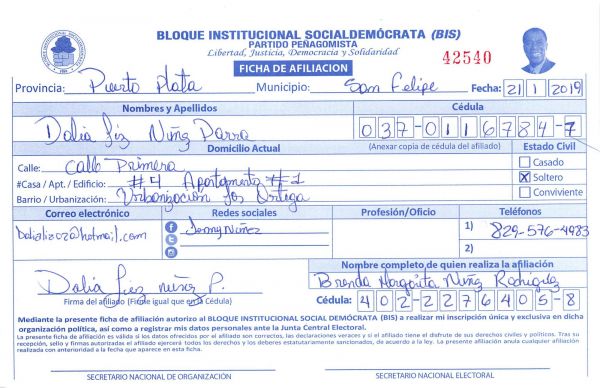 BLOQUE INSTITUCIONAL SOCIALDEMÓCRATA (BIS)
PARTIDO PEÑAGOMISTA
Libertad, Justicia, Democracia y Solidaridad
FICHA DE AFILIACION
42540
Provincia: Puerto Plata Municipio: San Felipe Fecha: 21 1 2019
Nombres y Apellidos Cédula
Dalia liz Núñz Parra 037-0116784-7
Domicilio Actual (Anexar copia de cédula del afiliado) Estado Civil
Calle: Calle Primera Casado
#Casa / Apt. / Edificio: #4 Apartamento #1 X Soltero
Barrio / Urbanización: Urbanización los Ortega Conviviente
Correo electrónico Redes sociales Profesión/Oficio Teléfonos
Jenny Núñez 1) 829-576-4983
2)
Nombre completo de quien realiza la afiliación
Dalia liez núñez P. Brenda Margarita Núñz Rodriguez
Firma del afiliado (Firme igual que en la Cédula) Cédula: 402-2276405-8
Mediante la presente ficha de afiliación autorizo al BLOQUE INSTITUCIONAL SOCIAL DEMÓCRATA (BIS) a realizar mi inscripción única y exclusiva en dicha
organización política, así como a registrar mis datos personales ante la Junta Central Electoral.
La presente ficha de afiliación es válida si los datos ofrecidos por el afiliado son correctos, las declaraciones veraces y si el afiliado tiene el disfrute de sus derechos civiles y políticos. Tras su
recepción, sello y firmas autorizadas el afiliado ejercerá todos los derechos y los deberes estatutariamente sancionados, de acuerdo a la ley. La presente afiliación anula cualquier afiliación
realizada con anterioridad a la fecha que aparece en esta ficha.
SECRETARIO NACIONAL DE ORGANIZACIÓN SECRETARIO NACIONAL ELECTORAL